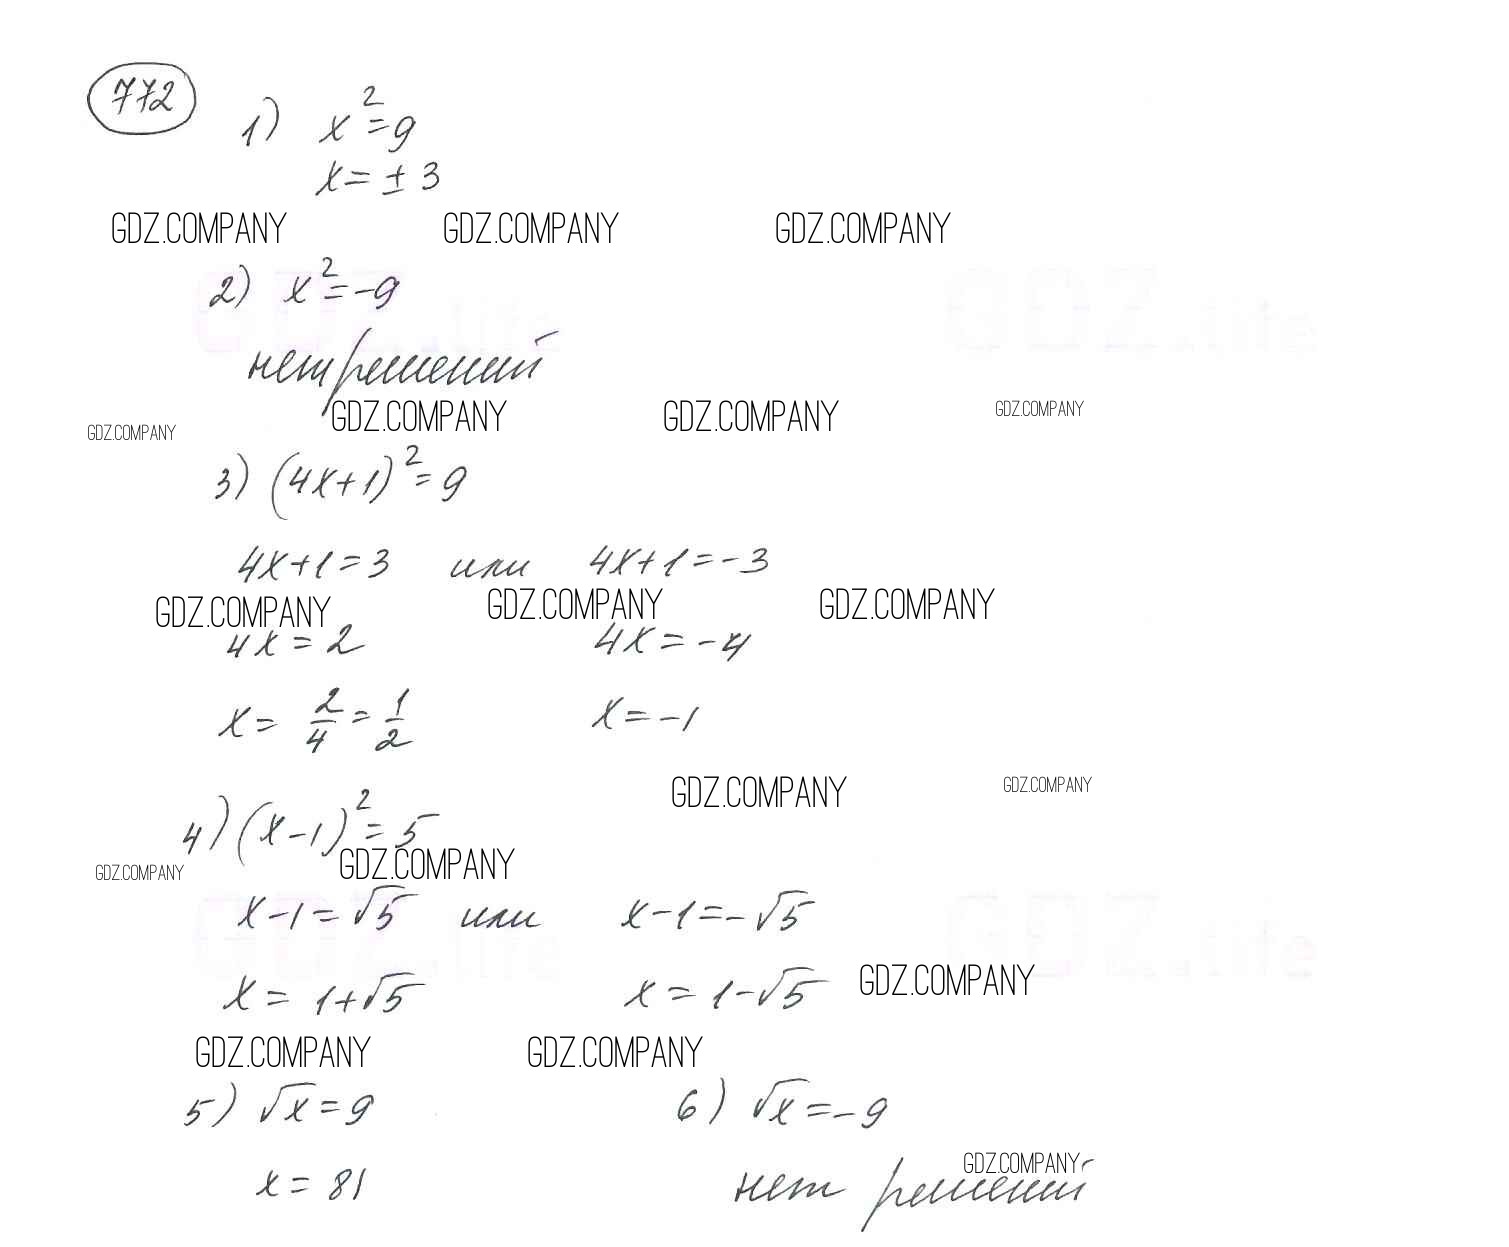 772
1) x²=9
x=±3
GDZ.COMPANY GDZ.COMPANY GDZ.COMPANY
2) x²=-9
GDZ.life GDZ.life
нет решений
GDZ.COMPANY GDZ.COMPANY GDZ.COMPANY GDZ.COMPANY
3) (4x+1)²=9
4x+1=3 или 4x+1=-3
GDZ.COMPANY GDZ.COMPANY GDZ.COMPANY
4x=2 4x=-4
x=2/4=1/2 x=-1
GDZ.COMPANY GDZ.COMPANY
4) (x-1)²=5
GDZ.COMPANY GDZ.COMPANY
x-1=√5 или x-1=-√5
GDZ.life GDZ.life
x=1+√5 x=1-√5 GDZ.COMPANY
GDZ.COMPANY GDZ.COMPANY
5) √x=9 6) √x=-9
GDZ.COMPANY
x=81 нет решений